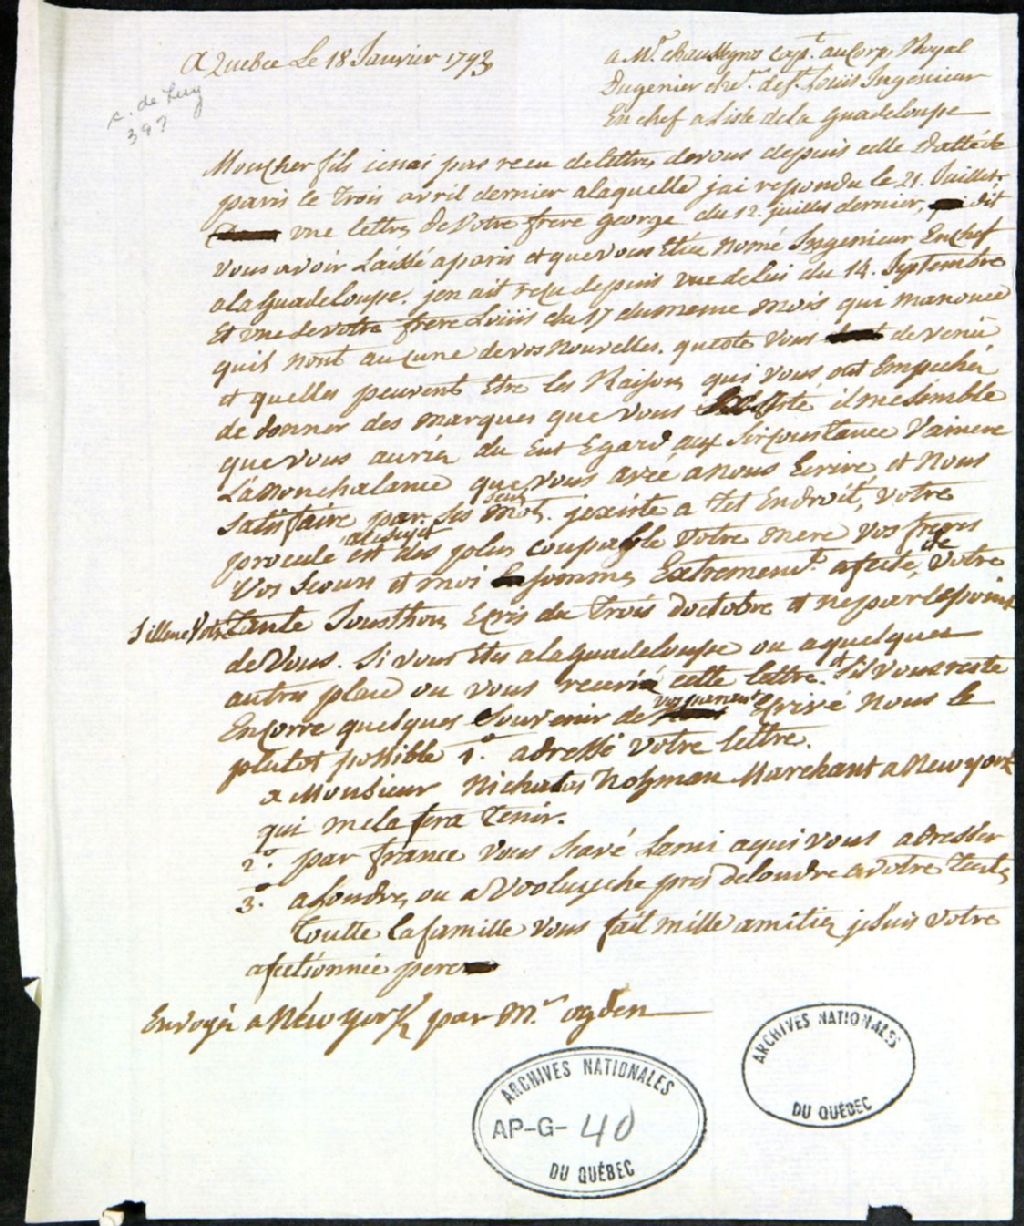 A Quebec Le 18 Janvier 1793
a Mr. chaussegros cap.t au corp Royal
Ingenier che.r de st. Louiis Ingenieur
En chef a Liste de la Guadeloupe
c. de Lery
397
Moncher fils ie nai pas recu de lettre devous depuis celle Dattée de
paris le Trois avril dernier alaquelle jai repondu le 21. Juillet
une lettre de Votre frere george du 12. juillet dernier, dit
vous avoir Laissé aparis et que vous Etié nomé Ingenieur En chef
ala Guadeloupe. jen ait reçu depuis une de lui du 14. Septembre
Et une de votre frere Loiiis du 17 du meme mois qui manonce
quil nont aucune de vos nouvelles. quete vous de venu
et quelles peuvent Etre les Raisons qui vous ont Empeché
de donner des marques que vous Existé il me Semble
que vous auriéz du Eut Egard aux Sirconstance Vaincre
La Nonchalance que vous avéé anous Ecrire et Nous
Satisfaire par Ses seul Mot. jexiste a tel Endroit, Votre
procedé a ce sujet est des plus coupable votre mere vos freres
Vos Seours et moi sommes Extremem.t afecté, de Votre
Sillence Votre Tante Jousthon Ecris du Trois doctobre et ne parle point
de Vous. Si vous Etes ala guadeloupe ou a quelques
autres place ou vous receriéz cette lettre. et Sil vous reste
Encorre quelques Souvenir de vos parents Ecrivé Nous Le
plutot possible 1.o adressé votre lettre.
a Monsieur Nicholas Hofman Marchant a New york
qui mela fera Tenir.
2.o par france vous Savé Lami a qui vous adresser
3.o a Londre, ou a Vooluiche pres de Londre a votre Tante
Toutte la famille vous fait mille amitiéz je Suis votre
afectionnée pere
Envoyéz a Néw york par M.r ogden
ARCHIVES NATIONALES
DU QUÉBEC
ARCHIVES NATIONALES
AP-G-40
DU QUÉBEC